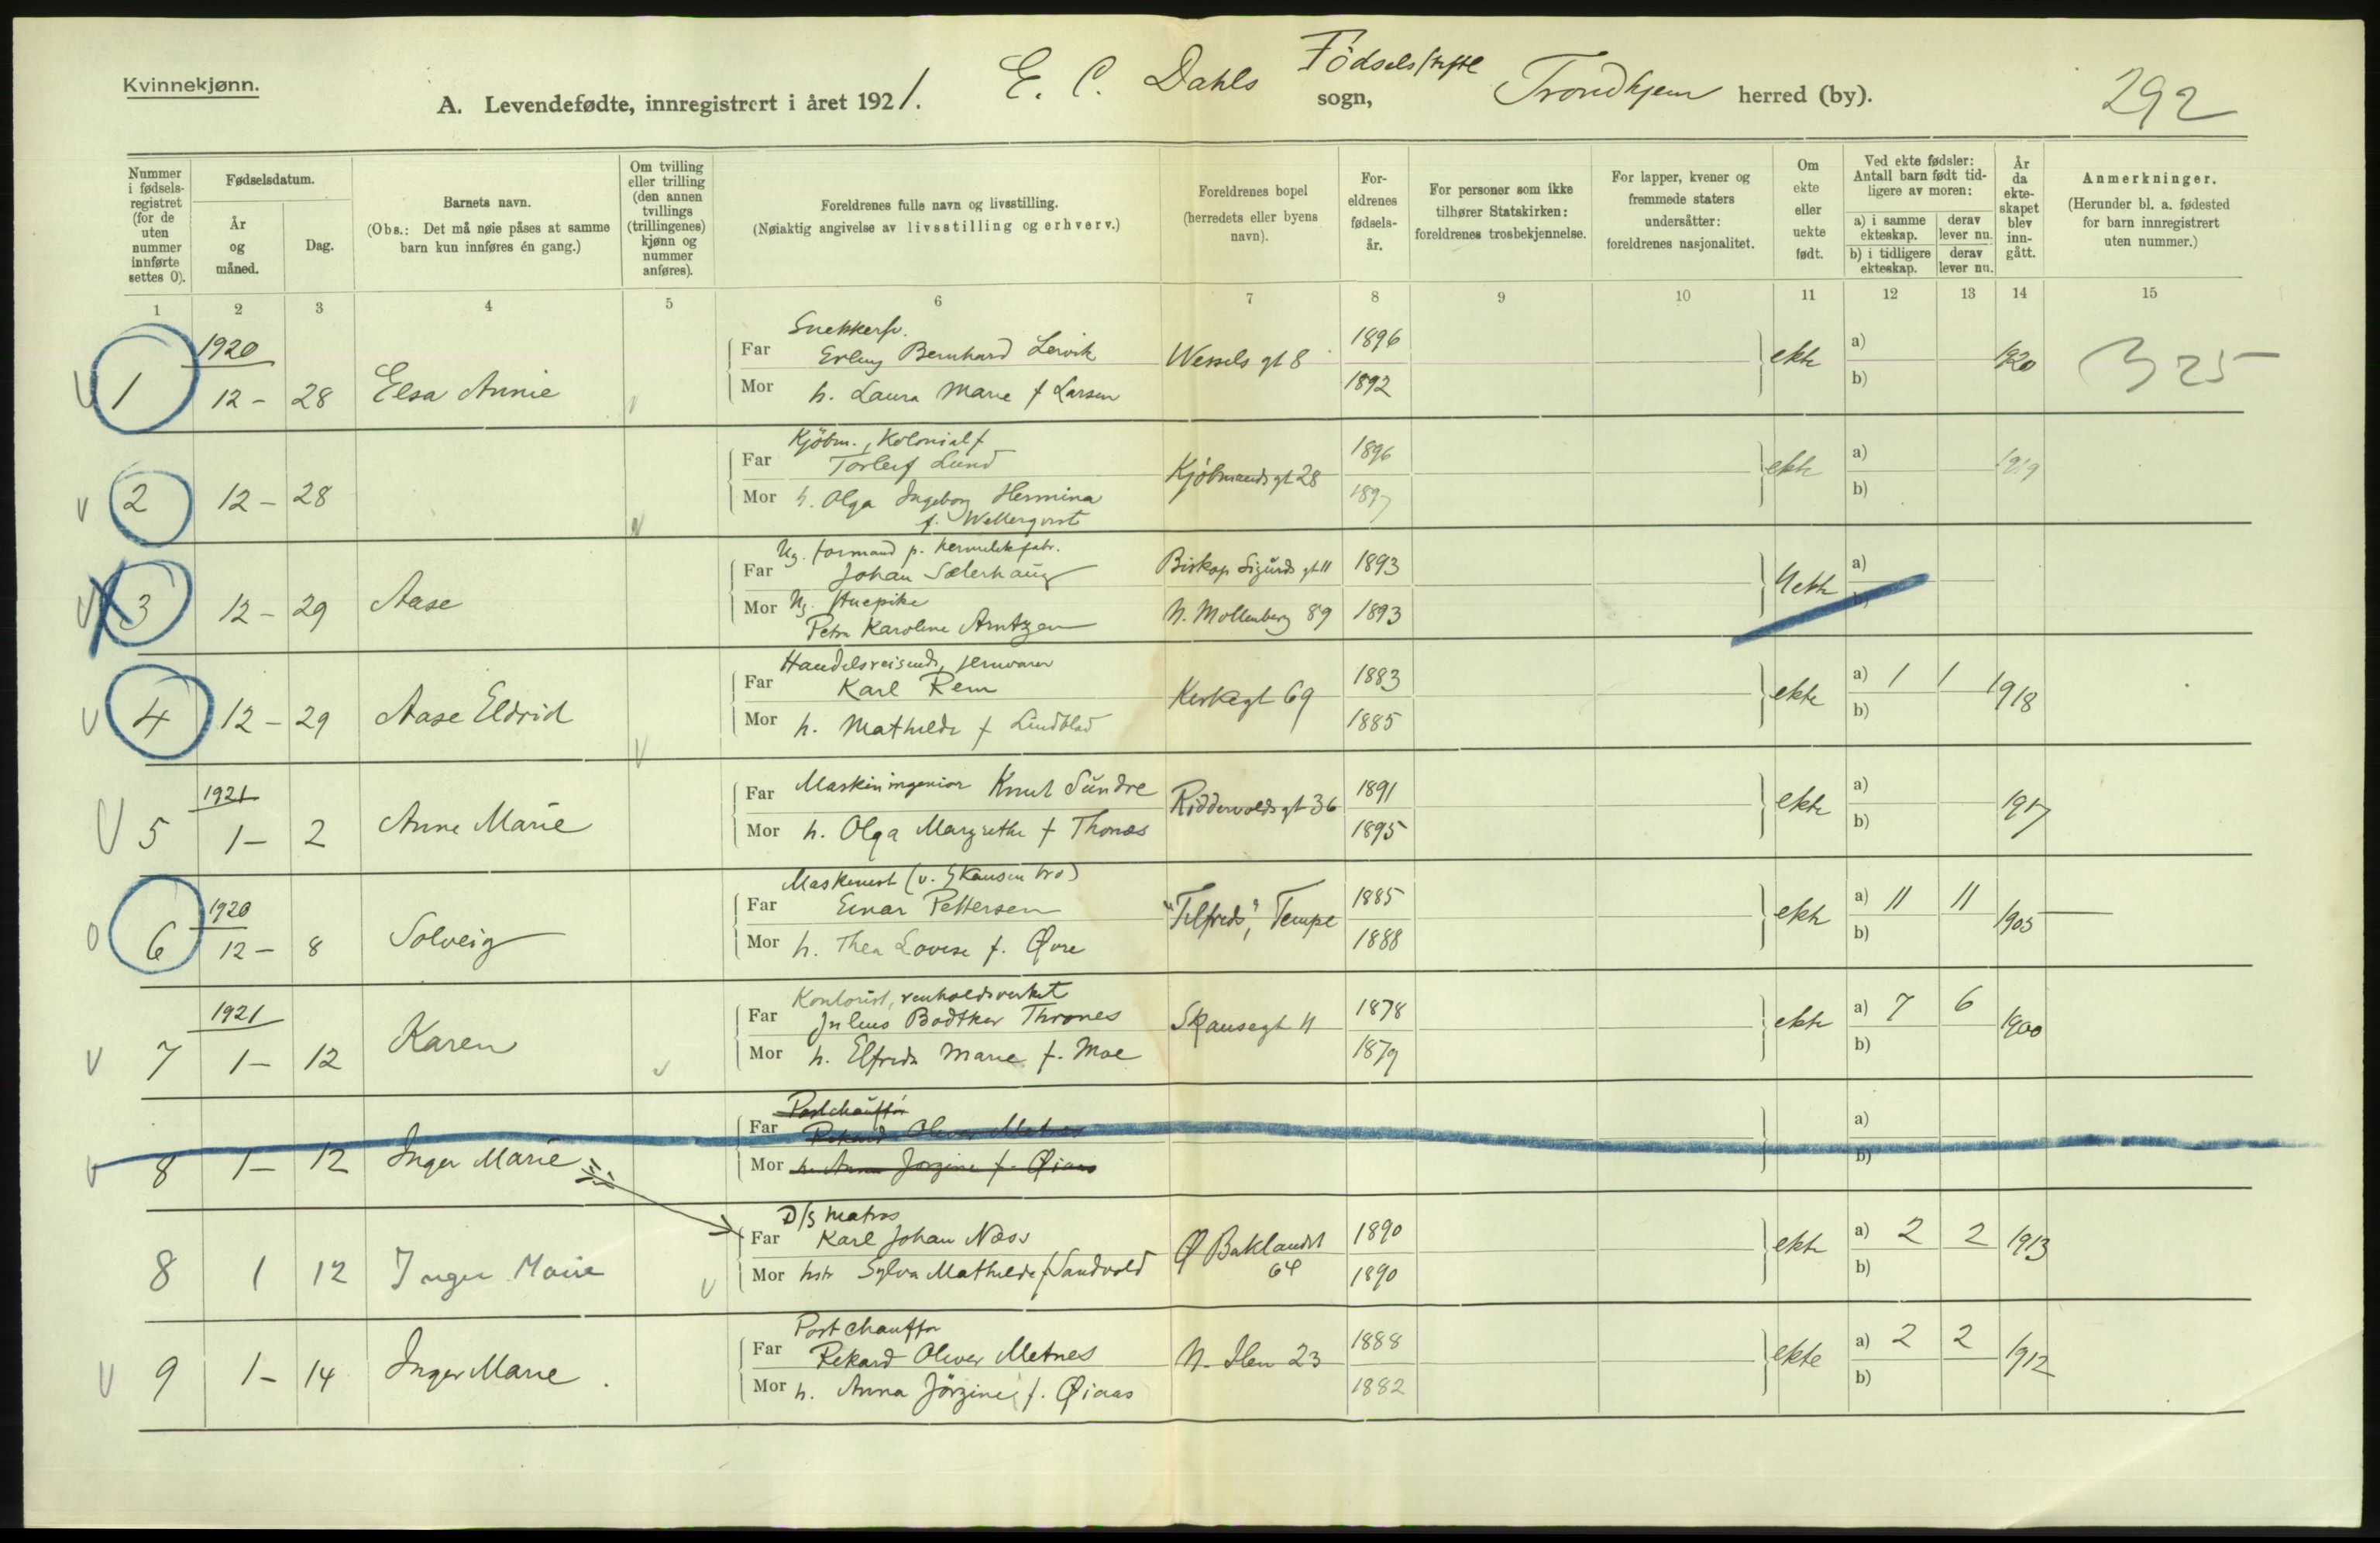 Kvinnekjønn.
A. Levendefødte, innregistrert i året 1921. E. C. Dahls Födselsstiftelse sogn, Trondhjem herred (by). 292
Nummer i fødselsregistret (for de uten nummer innførte settes 0).
Fødselsdatum.
År og måned.
Dag.
Barnets navn.
(Obs.: Det må nøie påses at samme barn kun innføres én gang.)
Om tvilling eller trilling (den annen tvillings (trillingenes) kjønn og nummer anføres).
Foreldrenes fulle navn og livsstilling.
(Nøiaktig angivelse av livsstilling og erhverv.)
Foreldrenes bopel (herredets eller byens navn).
Foreldrenes fødselsår.
For personer som ikke tilhører Statskirken: foreldrenes trosbekjennelse.
For lapper, kvener og fremmede staters undersåtter: foreldrenes nasjonalitet.
Om ekte eller uekte født.
Ved ekte fødsler: Antall barn født tidligere av moren:
a) i samme ekteskap. derav lever nu.
b) i tidligere ekteskap. derav lever nu.
År da ekteskapet blev inngått.
Anmerkninger.
(Herunder bl. a. fødested for barn innregistrert uten nummer.)
1 2 3 4 5 6 7 8 9 10 11 12 13 14 15
1920
Snekkersv.
1 12 - 28 Elsa Annie Far Erling Bernhard Lervik Wessels gt 8 1896 ekte a) 1920 325
Mor h. Laura Marie f Larsen 1892 b)
Kjöbm., Kolonialf
2 12 - 28 Far Torleif Lund Kjöbmands gt 28 1896 ekte a) 1919
Mor h. Olga Ingeborg Hermina 1897 b)
f. Wettergvist
Ug. formand p. hermetikfabr.
3 12 - 29 Aase Far Johan Sæterhaug Biskop Sigurds gt 11 1893 Uekte a)
Mor Ug. Stuepike N. Mollenberg 89 1893 b)
Petra Karoline Arntzen
Handelsreisende, jernvarer
4 12 - 29 Aase Eldrid Far Karl Rem Kirkegt 69 1883 ekte a) 1 1 1918
Mor h. Mathilde f Lindblad 1885 b)
1921
5 1 - 2 Anne Marie Far Maskiningeniør Knut Sundre Riddervolds gt 36 1891 ekte a) 1917
Mor h. Olga Margrethe f Thonæs 1895 b)
Maskinist (v. Skansen bro)
1920
6 12 - 8 Solveig Far Einar Pettersen "Tilfreds", Tempe 1885 ekte a) 11 11 1905
Mor h. Thea Lovise f. Øvre 1888 b)
1921
Kontorist, renholdsverket
7 1 - 12 Karen Far Julius Bødtker Thrones Skansegt 11 1878 ekte a) 7 6 1900
Mor h. Elfrida Marie f. Moe 1879 b)
Postchauffør
8 1 - 12 Inger Marie Far Rikard Oliver Metnes a)
Mor h. Anna Jørgine f. Øiaas b)
D/S Matros
8 1 12 Inger Marie Far Karl Johan Næss Ø Baklandet 64 1890 ekte a) 2 2 1913
Mor hstr Sylva Mathilde f Sandvold 1890 b)
Post chauffør
9 1 - 14 Inger Marie . Far Rikard Oliver Metnes N. Ilen 23 1888 ekte a) 2 2 1912
Mor h. Anna Jörgine f. Øiaas 1882 b)